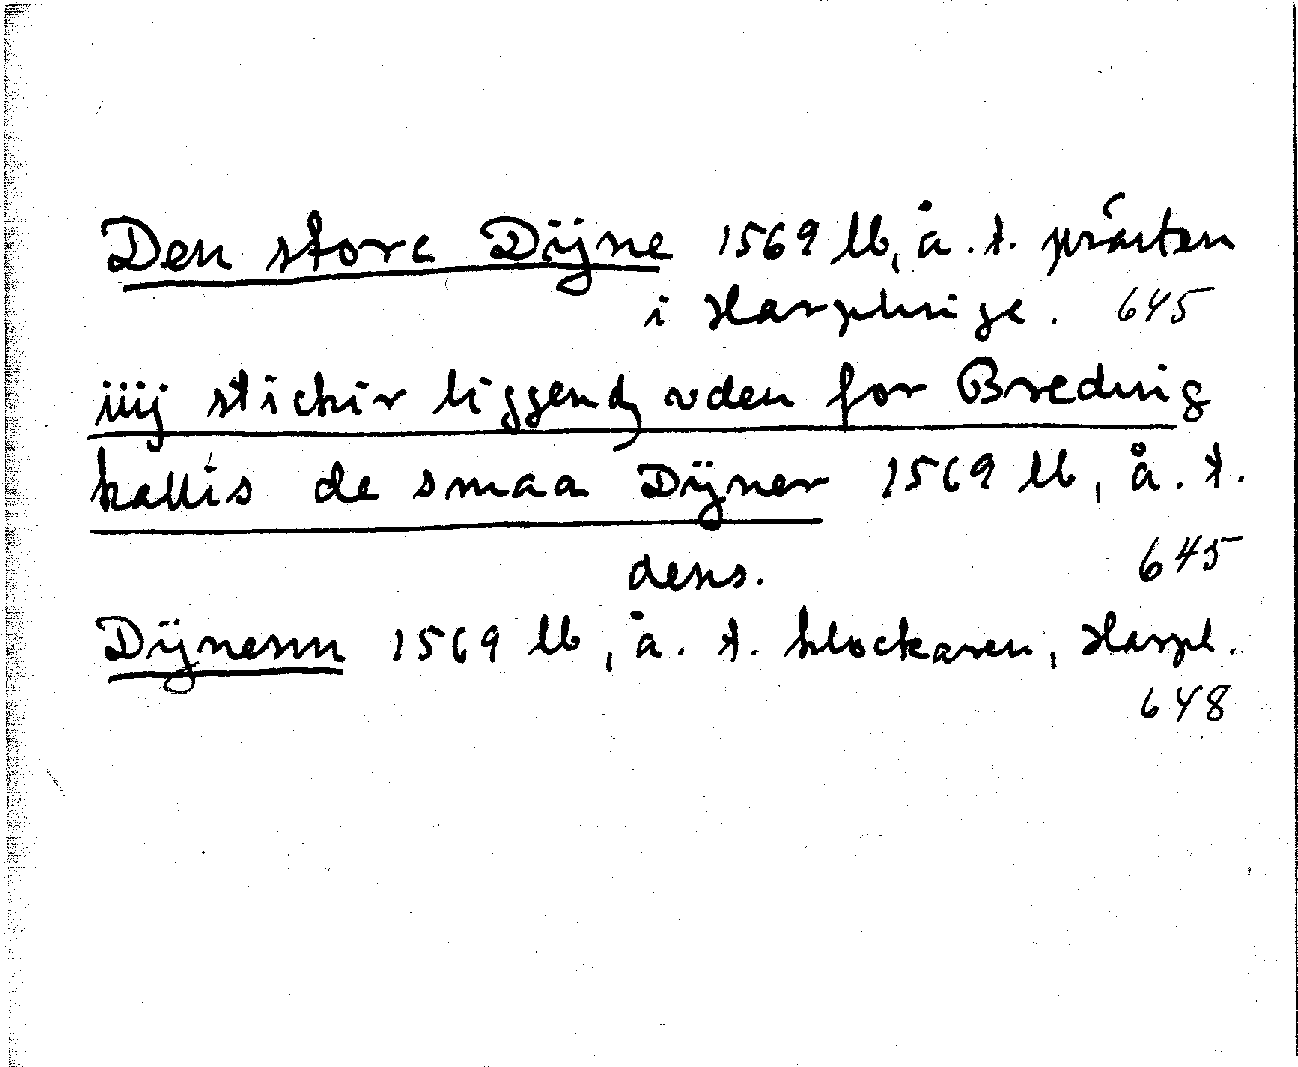 Den store Dÿne 1569 lb, å. t. prästen
i Harplinge. 645
iiij stickir liggendς uden for Breduig
kallis de smaa Dÿner 1569 lb, å. t.
dens. 645
Dÿnenn 1569 lb, å. t. klockaren, Harpl.
648